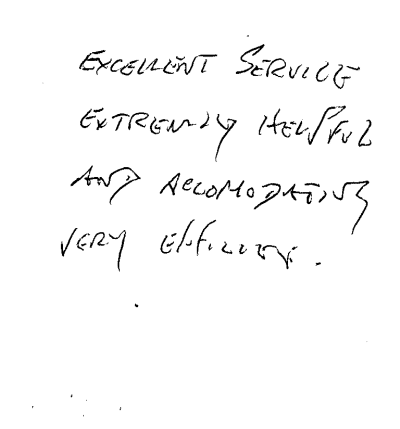 EXCELLENT SERVICE
EXTREMLY HELPFUL
AND ACCOMODATING
VERY EFFICIENT.